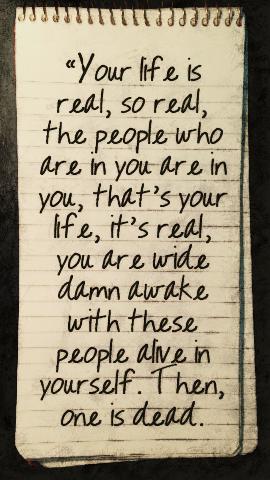 “Your life is
real, so real,
the people who
are in you are in
you, that's your
life, it's real,
you are wide
damn awake
with these
people alive in
yourself. Then,
one is dead.